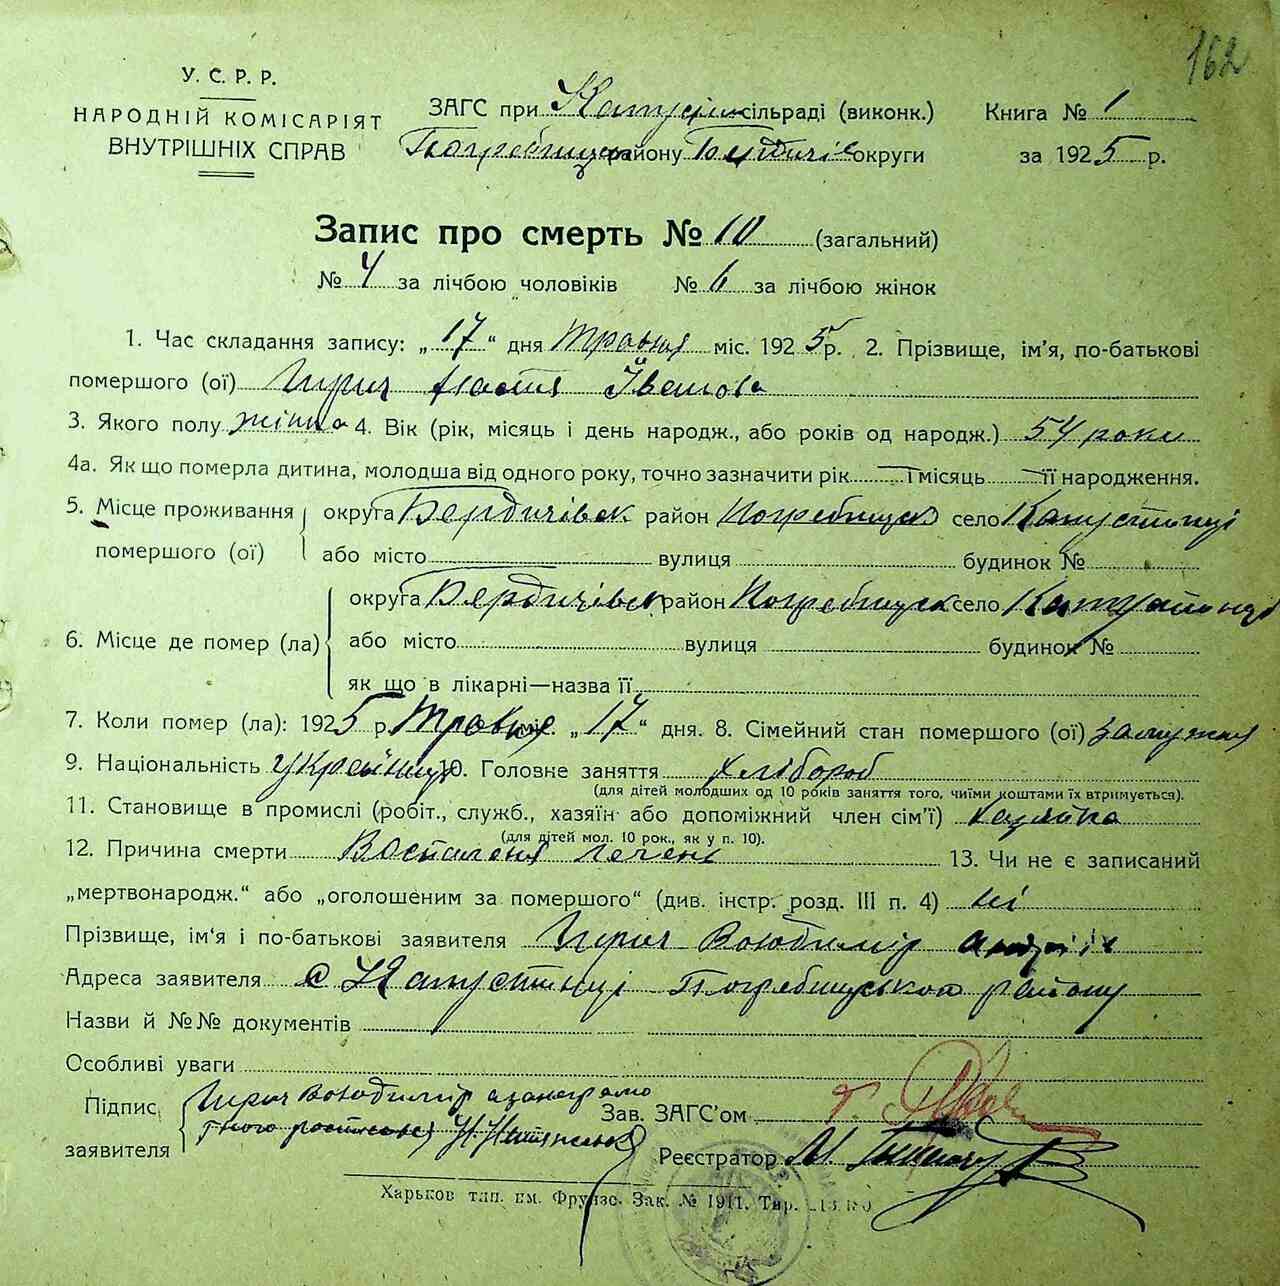 162
У. С. Р. Р.
НАРОДНІЙ КОМІСАРІЯТ
ВНУТРІШНІХ СПРАВ
ЗАГС при сільраді (виконк.)
району округи
Книга № 1
за 1925 р.
Запис про смерть № 10 (загальний)
№ 4 за лічбою чоловіків № 6 за лічбою жінок
1. Час складання запису: „17“ дня Травня міс. 1925 р. 2. Прізвище, ім'я, по-батькові
помершого (ої) Настя Іванова
3. Якого полу жіно 4. Вік (рік, місяць і день народж., або років од народж.) 54 роки
4а. Як що померла дитина, молодша від одного року, точно зазначити рік і місяць її народження.
5. Місце проживання округа Бердичівск район Погребищск село Капустинці
помершого (ої) або місто вулиця будинок №
округа Бердичівск район Погребищск село Капустинці
6. Місце де помер (ла) або місто вулиця будинок №
як що в лікарні—назва її
7. Коли помер (ла): 1925 р. Травня міс. „17“ дня. 8. Сімейний стан помершого (ої) замужня
9. Національність українця 10. Головне заняття хлібороб
(для дітей молодших од 10 років заняття того, чиїми коштами їх втримується).
11. Становище в промислі (робіт., служб., хазяїн або допоміжний член сім'ї) хазяйка
(для дітей мол. 10 рок., як у п. 10).
12. Причина смерти Воспаленя печень 13. Чи не є записаний
„мертвонародж.“ або „оголошеним за помершого“ (див. інстр. розд. III п. 4) ні
Прізвище, ім'я і по-батькові заявителя Володимір
Адреса заявителя с Капустинці Погребищського району
Назви й №№ документів
Особливі уваги
Підпис Володимір
заявителя
Зав. ЗАГС'ом
Реєстратор М.
Харьков тип. им. Фрунзе. Зак. № 1911. Тир.